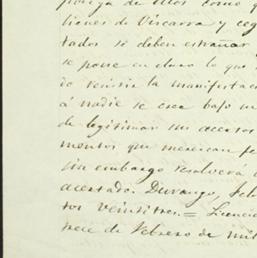 ponga de ellos como q
tiones de Viscarra y ceg
tados se deben estrañar
se pone en claro lo que
do reunir la manifestac
á nadie se crea bajo un
de legitimar sus asertos
mentos que merezcan fe
sin embargo resolverá
acertado. Durango, Feb
tos veintitres. = Licenc
trece de Febrero de mil